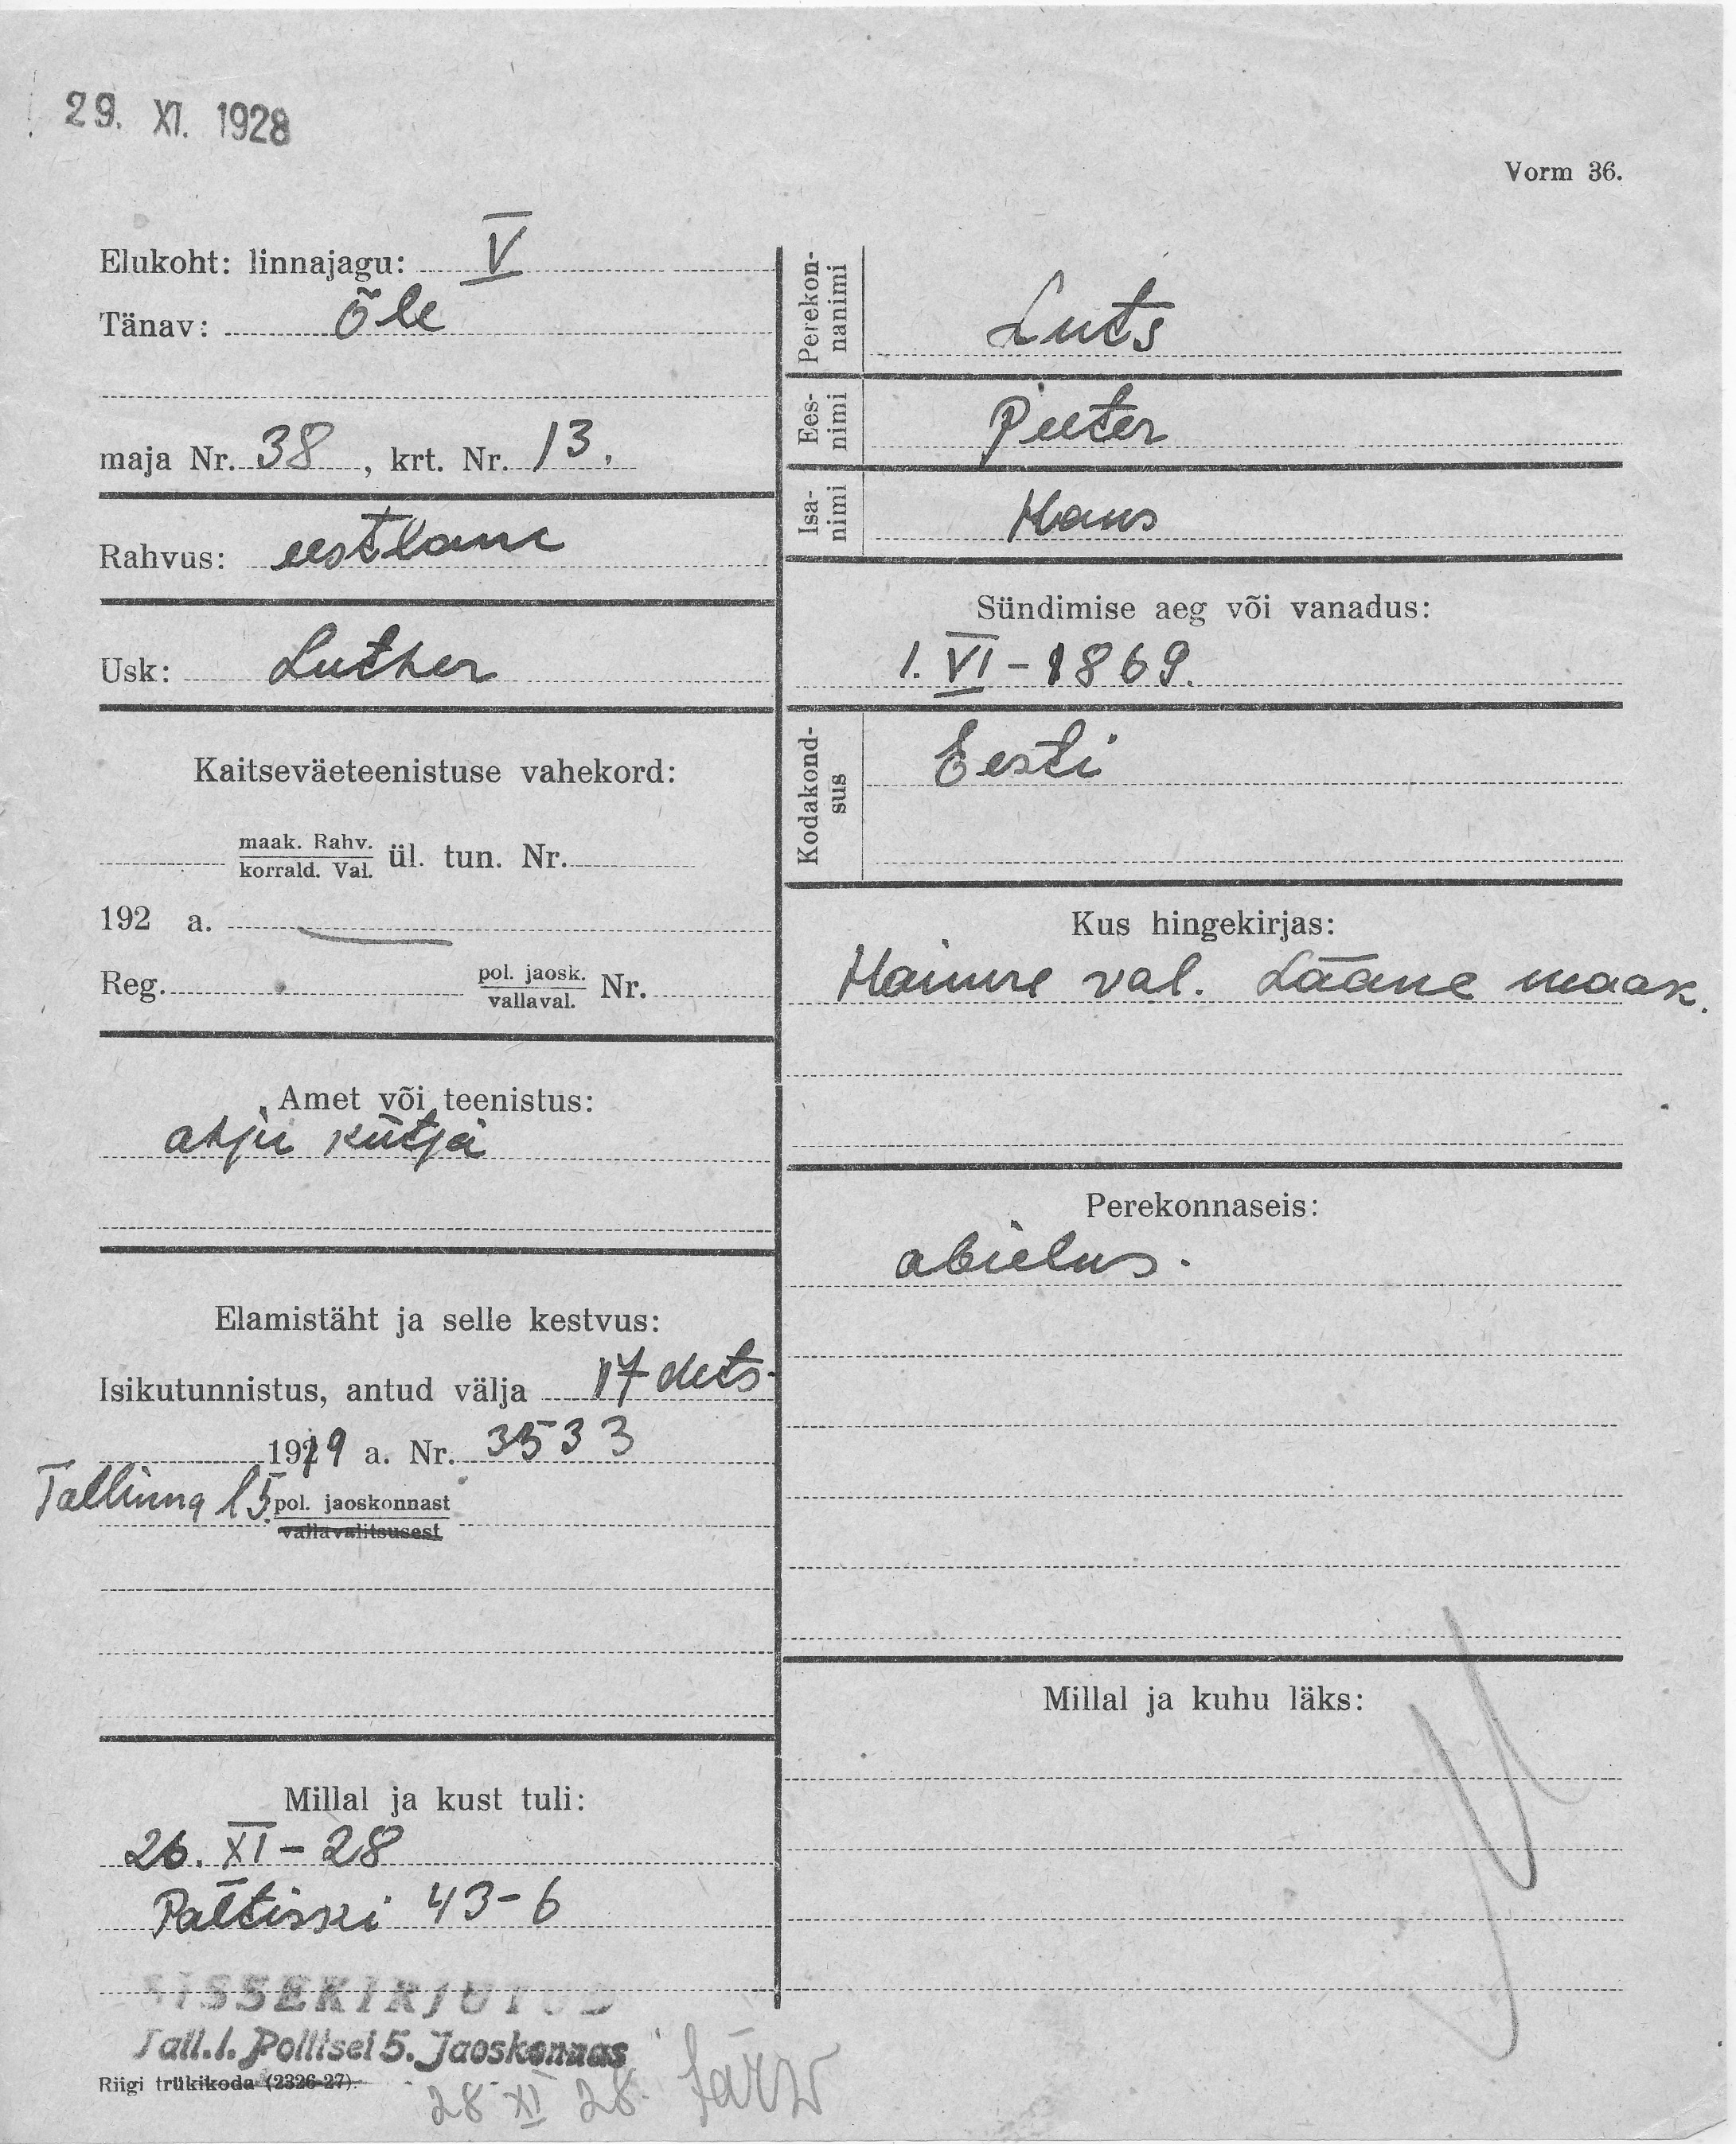 29. XI. 1928
Vorm 36.
Elukoht: linnajagu: V
Tänav: Õle
maja Nr. 38, krt. Nr. 13.
Rahvus: eestlane
Usk: Luther
Kaitseväeteenistuse vahekord:
maak. Rahv.
korrald. Val.
ül. tun. Nr.
192 a.
Reg.
pol. jaosk.
vallaval.
Nr.
Amet või teenistus:
ahju kütja
Elamistäht ja selle kestvus:
Isikutunnistus, antud välja 17 dets.
1919 a. Nr. 3533
Tallinna l 5. pol. jaoskonnast
vallavalitsusest
Millal ja kust tuli:
26. XI – 28
Paltiski 43-6
SISSEKIRJUTUD
Tall. l. Politsei 5. Jaoskonnas
Riigi trükikoda (2326-27).
28 XI 28.
Perekon-
nanimi
Luts
Ees-
nimi
Peeter
Isa-
nimi
Hans
Sündimise aeg või vanadus:
1. VI – 1869.
Kodakond-
sus
Eesti
Kus hingekirjas:
val. Lääne maak.
Perekonnaseis:
abielus.
Millal ja kuhu läks: